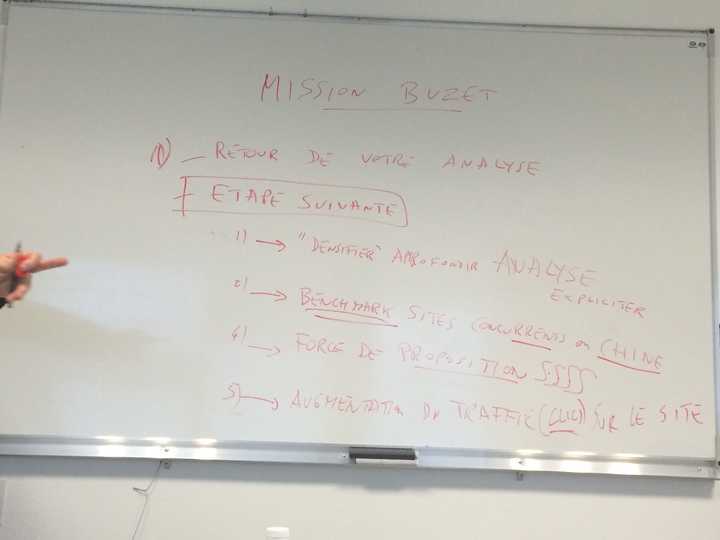 MISSION BUZET
1) - RETOUR DE VOTRE ANALYSE
+ ETAPE SUIVANTE
1) → "DENSIFIER" APPROFONDIR ANALYSE
EXPLICITER
2) → BENCHMARK SITES CONCURRENTS en CHINE
4) → FORCE DE PROPOSITION
5) → AUGMENTATION DU TRAFFIC (CLIC) SUR LE SITE